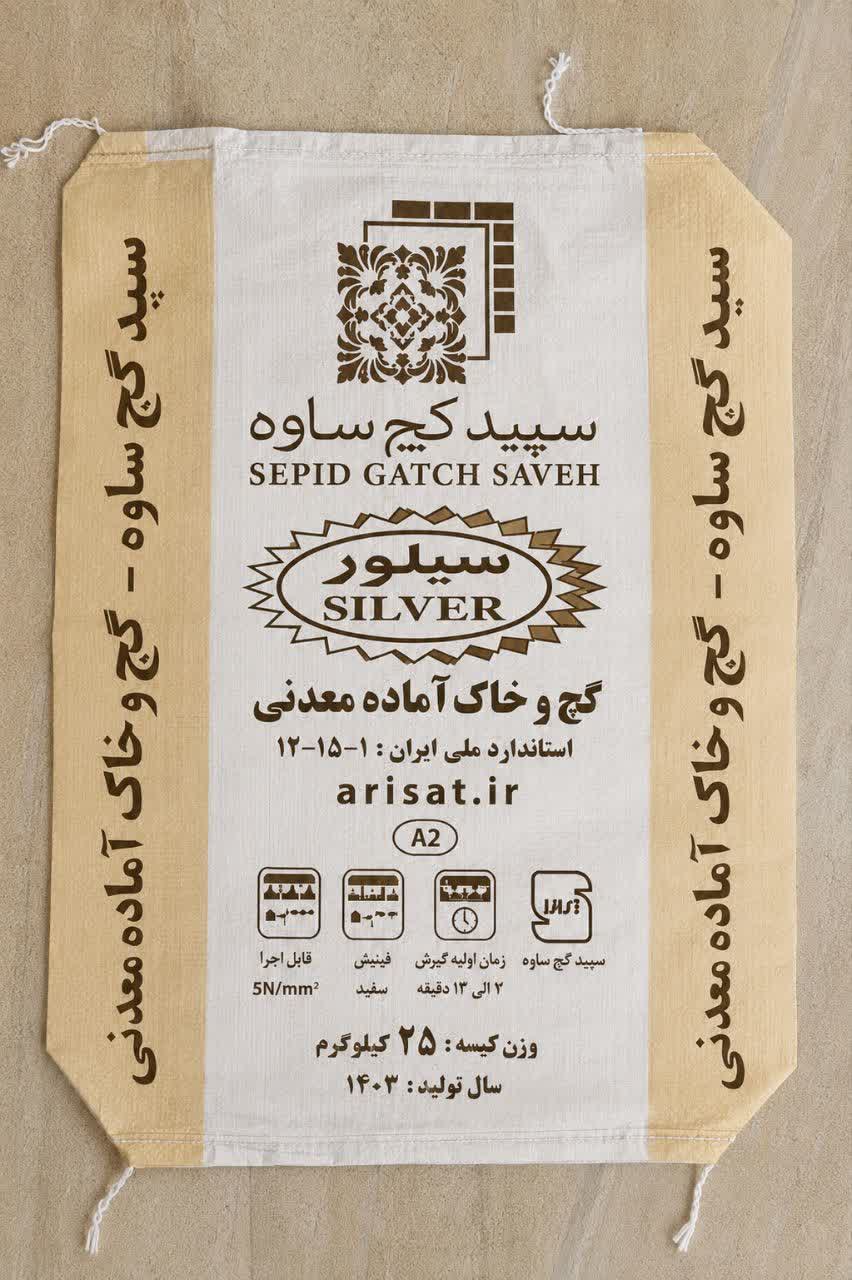 سپید گچ ساوه
SEPID GATCH SAVEH
سیلور
SILVER
گچ و خاک آماده معدنی
استاندارد ملی ایران : ۱-۱۵-۱۲
arisat.ir
A2
قابل اجرا
5N/mm²
فینیش
سفید
زمان اولیه گیرش
۲ الی ۱۳ دقیقه
سپید گچ ساوه
وزن کیسه : ۲۵ کیلوگرم
سال تولید : ۱۴۰۳
سپید گچ ساوه - گچ و خاک آماده معدنی
سپید گچ ساوه - گچ و خاک آماده معدنی